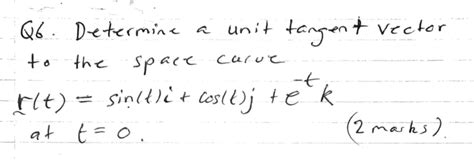 Q6. Determine a unit tangent vector
to the space curve
r(t) = sin(t)i + cos(t)j + e^-t k
at t = 0. (2 marks)